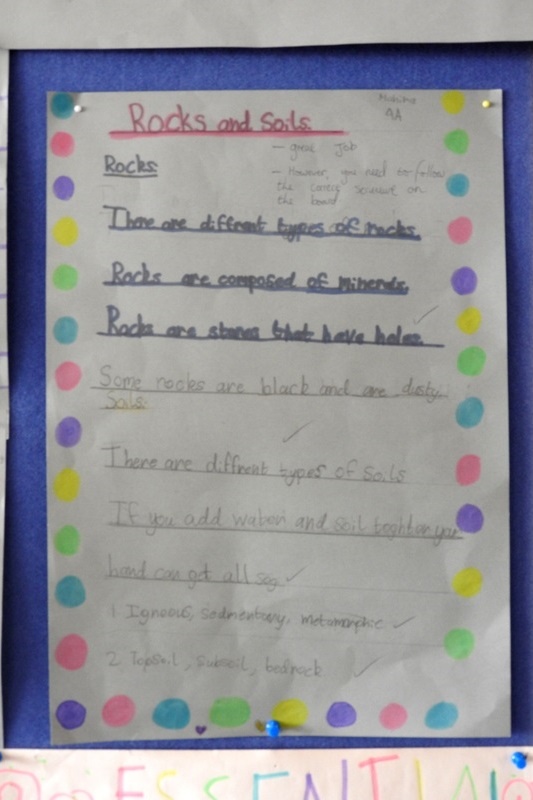 Rocks and Soils
4A
- great Job
Rocks
- However, you need to follow
the
the board
There are diffrent types of rocks.
Rocks are composed of minerals.
Rocks are stones that have holes.
Some rocks are black and are dusty.
Soils:
There are diffrent types of Soils
If you add and soil your
hand can get all
1 Igneous, sedimentary, metamorphic
2 Topsoil, subsoil, bedrock
ESSENTIAL